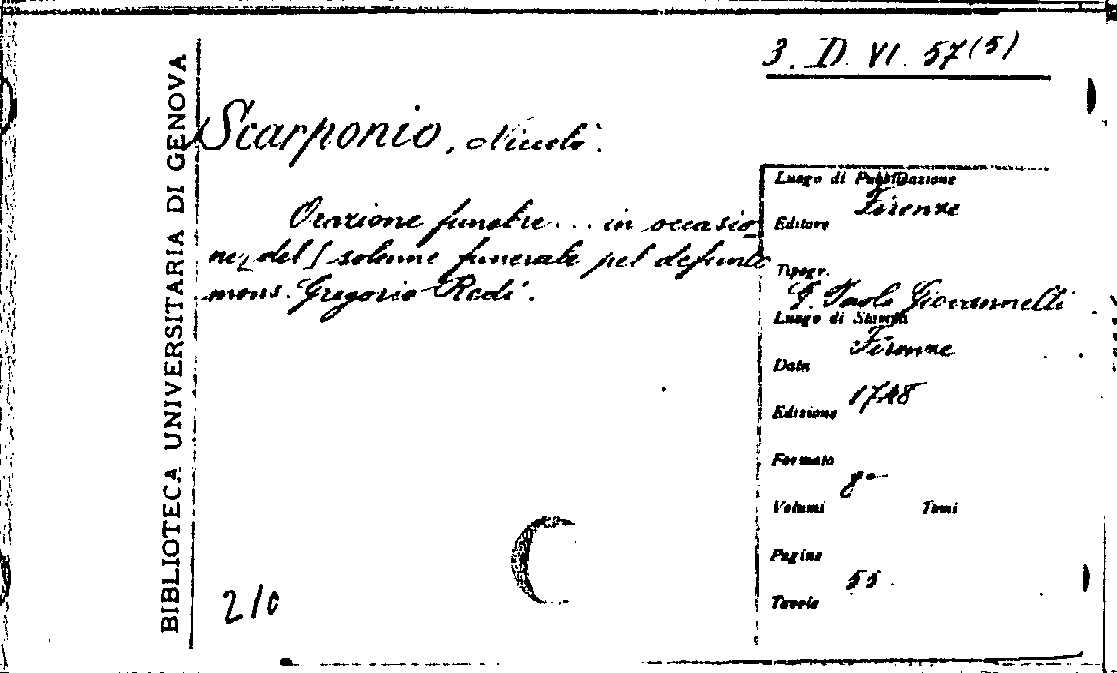 3. D. VI. 57(5)
BIBLIOTECA UNIVERSITARIA DI GENOVA
Scarponio, Nicolò.
Orazione funebre... in occasio
ne del solenne funerale pel defunto
mons. Gregorio Redi.
Luogo di Pubblicazione
Firenze
Editore
Tipogr.
G. Paolo Giovannelli
Luogo di Stampa
Firenze
Data
1748
Edizione
Formato
8°
Volumi Tomi
Pagine
55
Tavole
210